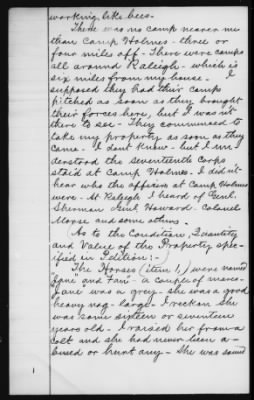 working like bees.
There was no camp nearer me
than Camp Holmes - three or
four miles off - There were camps
all around Raleigh - which is
six miles from my house - I
supposed they had their camps
pitched as soon as they brought
their forces here, but I wasn't
there to see - They commenced to
take my property as soon as they
came - I dont know - but I un-
derstood the seventeenth Corps
staid at Camp Holmes. I didn't
hear who the officers at Camp Holmes
were. At Raleigh I heard of Genl.
Sherman Genl Howard - Colonel
Morse and some others.
(As to the Condition, Quantity
and Value of the Property spec-
ified in Petition:-)
The Horses (item 1,) were named
"Jane and Fan" - a couple of mares.
Jane was a grey - she was a good
heavy nag - large - I reckon she
was some sixteen or seventeen
years old - I raised her from a
colt and she had never been a-
bused or hurt any - She was sound
1